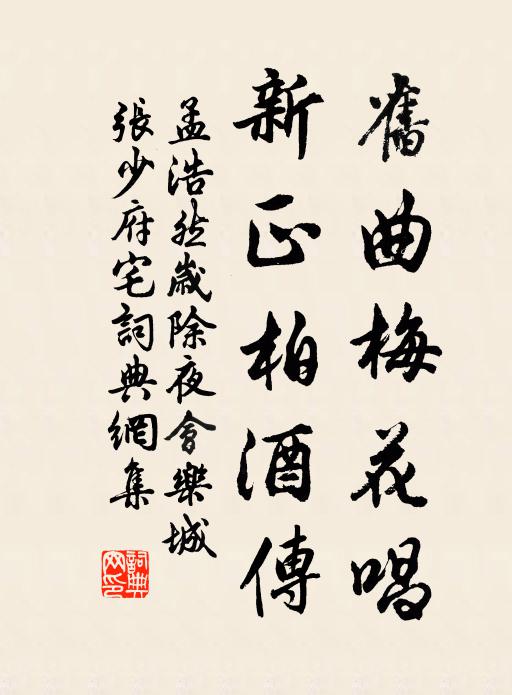 舊曲梅花唱
新正柏酒傳
孟浩然歲除夜會樂城
張少府宅詞典網集
詞典网印